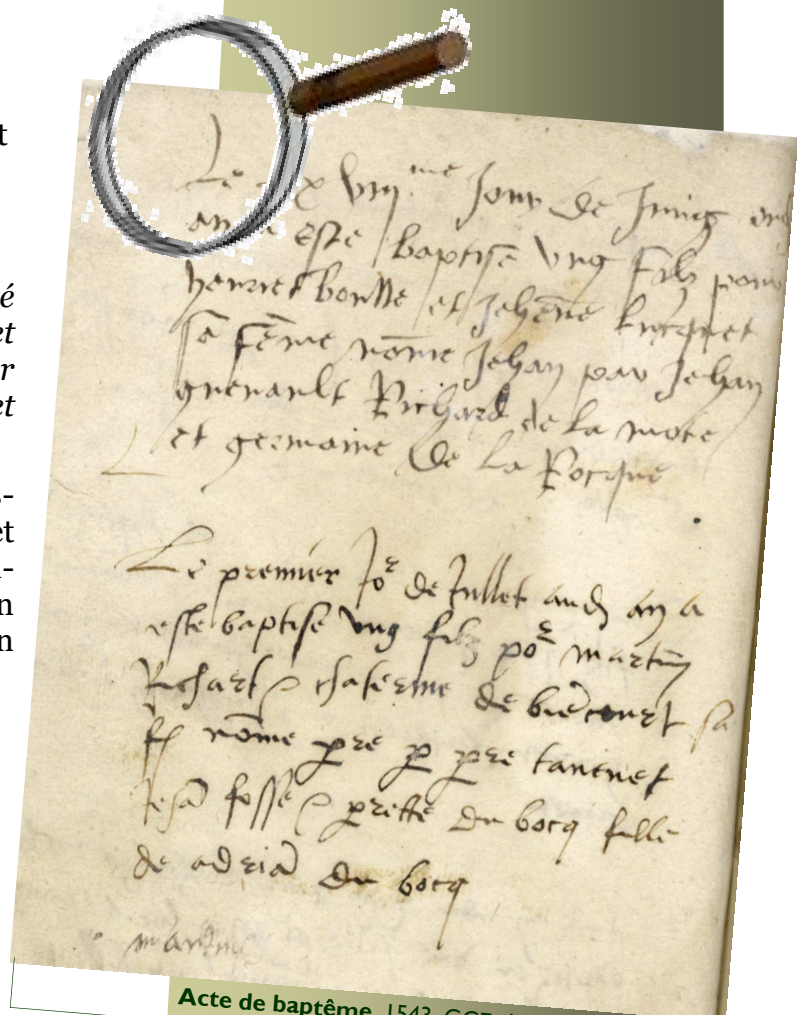 t
é
et
r
et
s-
et
i-
n
n
Le xxviii.me Jour de Juing
an a este baptise ung filz pour
henriet bonlle et Jehēne
sa fēme nōme Jehan par Jehan
guerault Richard de la mote
et germaine de la Rocque
Le premier Jor de Jullet audz an a
este baptise ung filz por martin
Richart & chaterine de biēcourt sa
fē nōme pre p pre tancuet
Jehā fosse & prette du bocq fille
de adriā du bocq
Acte de baptême, 1543.